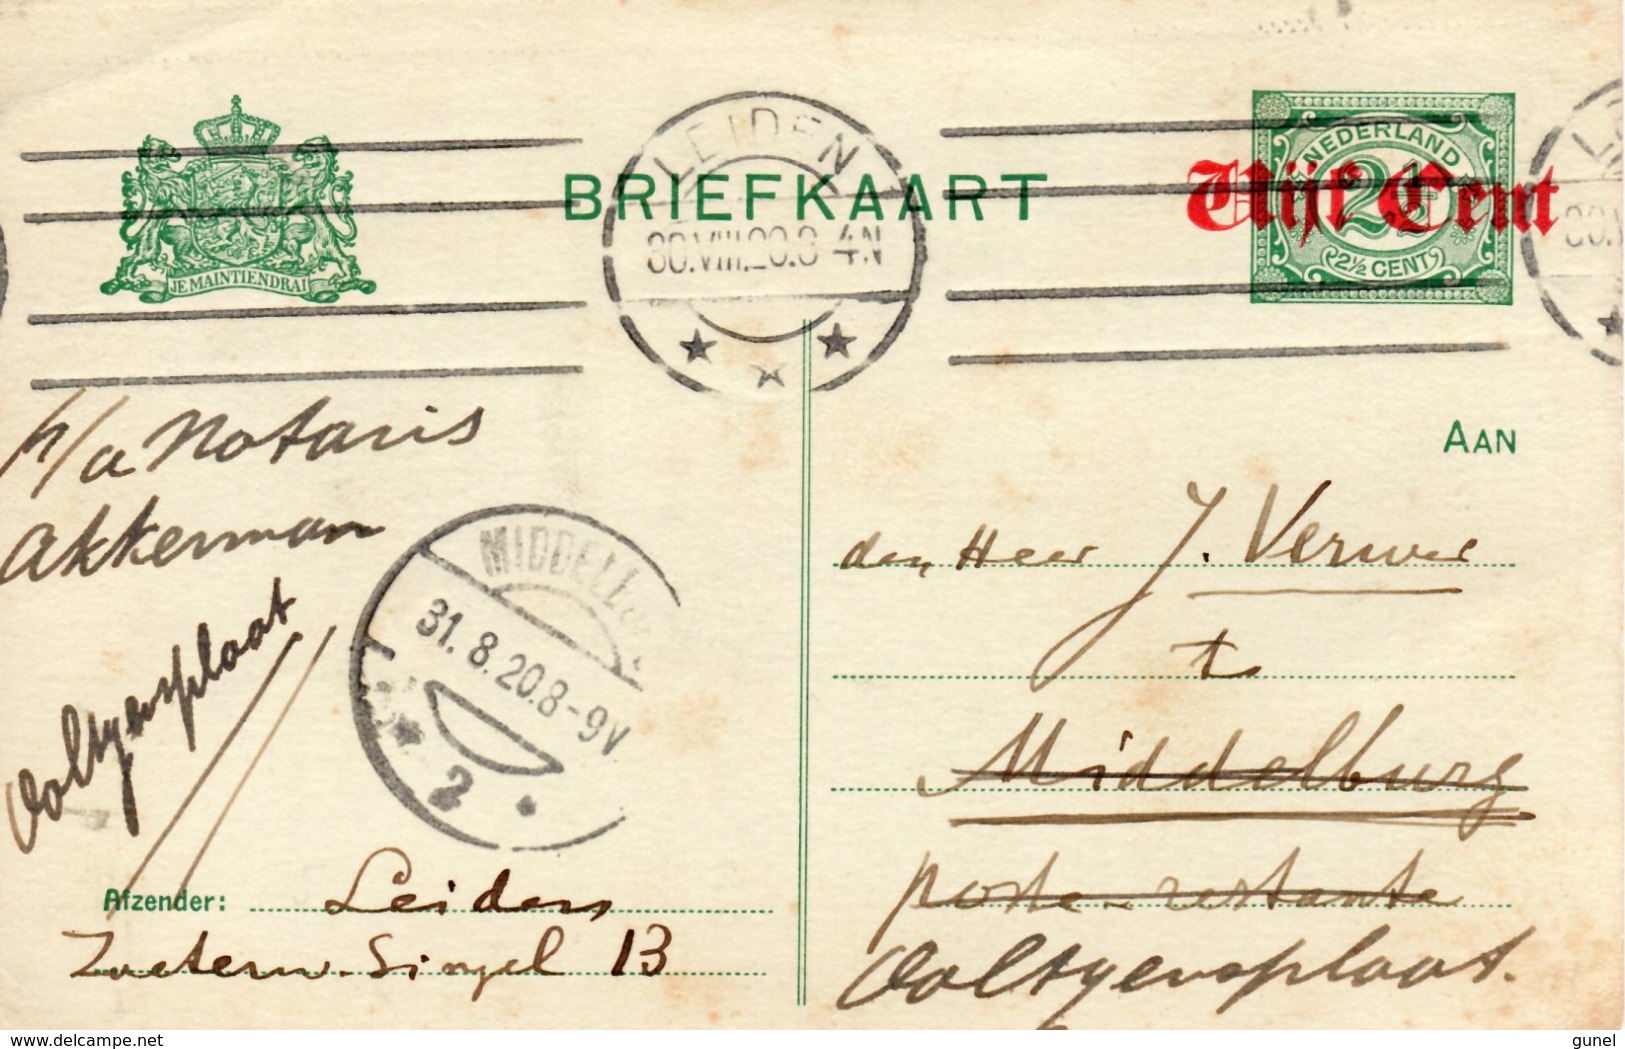 LEIDEN
BRIEFKAART
30.VIII.20.3-4N
JE MAINTIENDRAI
NEDERLAND
2½
2½ CENT
Vijf Cent
p/a Notaris
Akkerman
Ooltgensplaat
MIDDELBU
31.8.20.8-9V
2
AAN
den Heer J. Verwer
te
Middelburg
poste-restante
Ooltgensplaat.
Afzender: Leiden
Zoeterw. Singel 13
www.delcampe.net
gunel